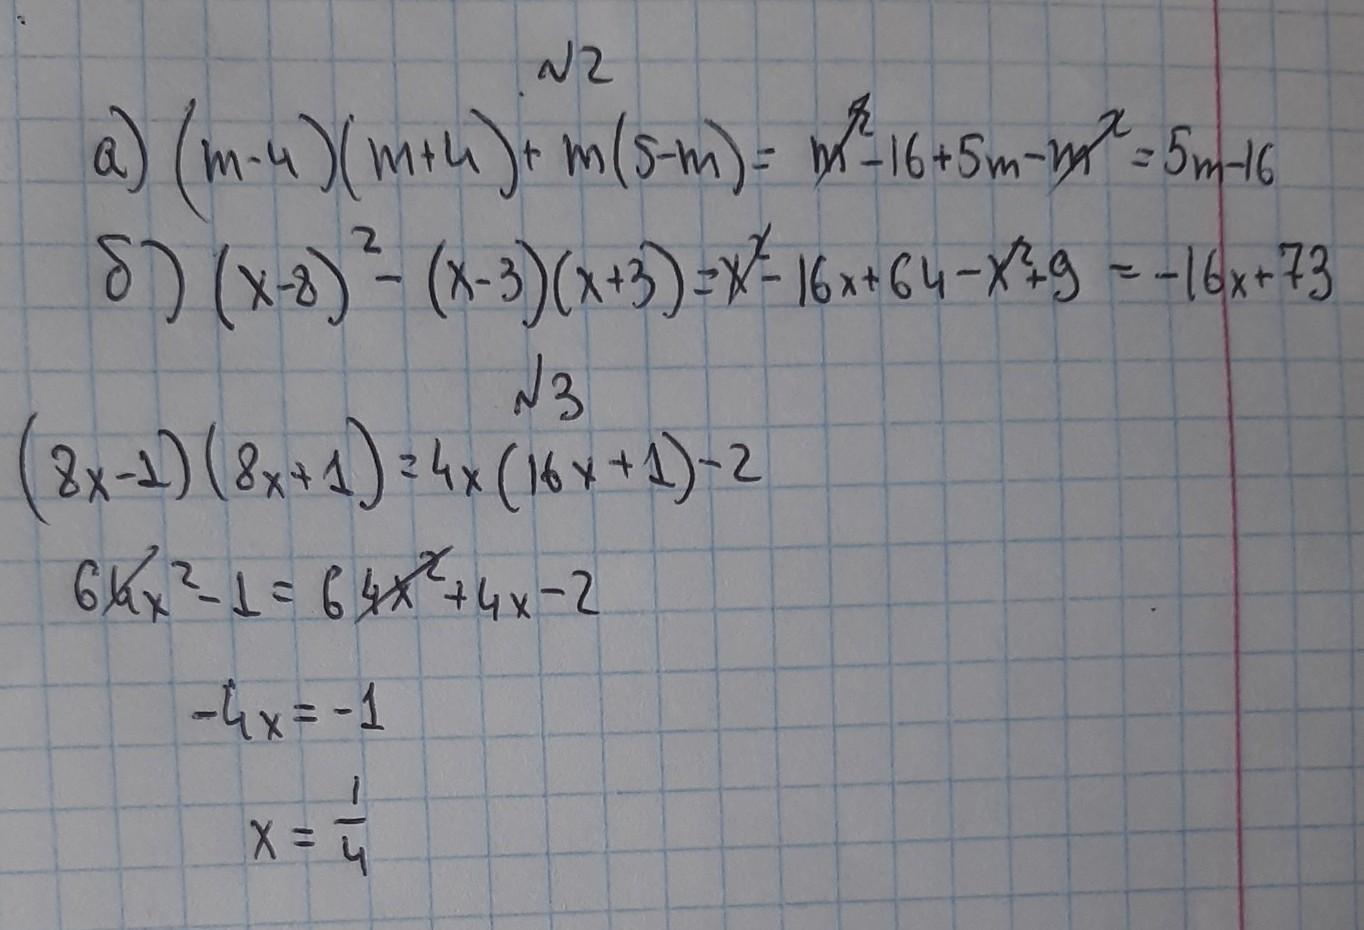 №2
а) (m-4)(m+4)+m(5-m)=m²-16+5m-m²=5m-16
б) (x-8)²-(x-3)(x+3)=x²-16x+64-x²+9=-16x+73
№3
(8x-1)(8x+1)=4x(16x+1)-2
64x²-1=64x²+4x-2
-4x=-1
x=1/4